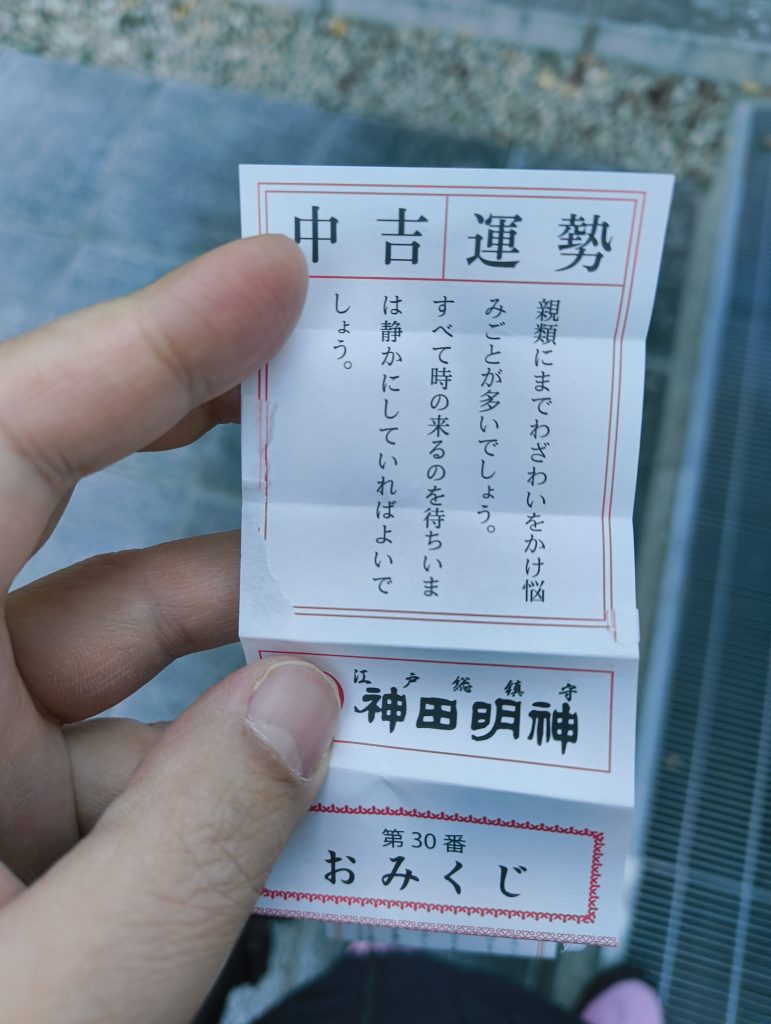 中吉 運勢
親類にまでわざわいをかけ悩
みごとが多いでしょう。
すべて時の来るのを待ちいま
は静かにしていればよいで
しょう。
江戸総鎮守
神田明神
第30番
おみくじ